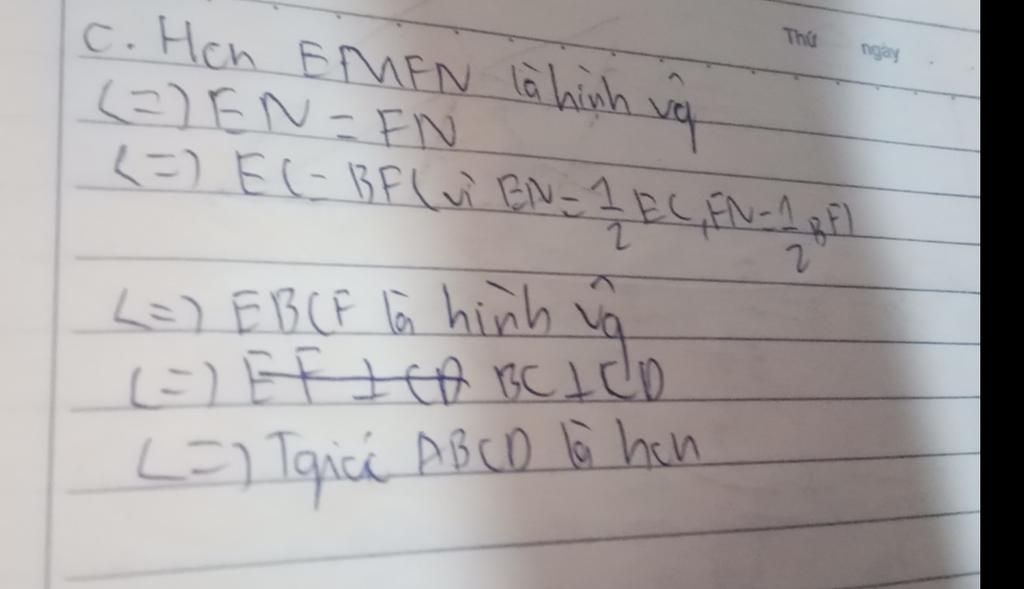 Thứ ngày
C. Hcn EMFN là hình vg
<=> EN = FN
<=> EC = BF (vì EN = 1/2 EC, FN = 1/2 BF)
<=> EBCF là hình vg
<=> EF ⊥ CD BC ⊥ CD
<=> Tgiác ABCD là hcn